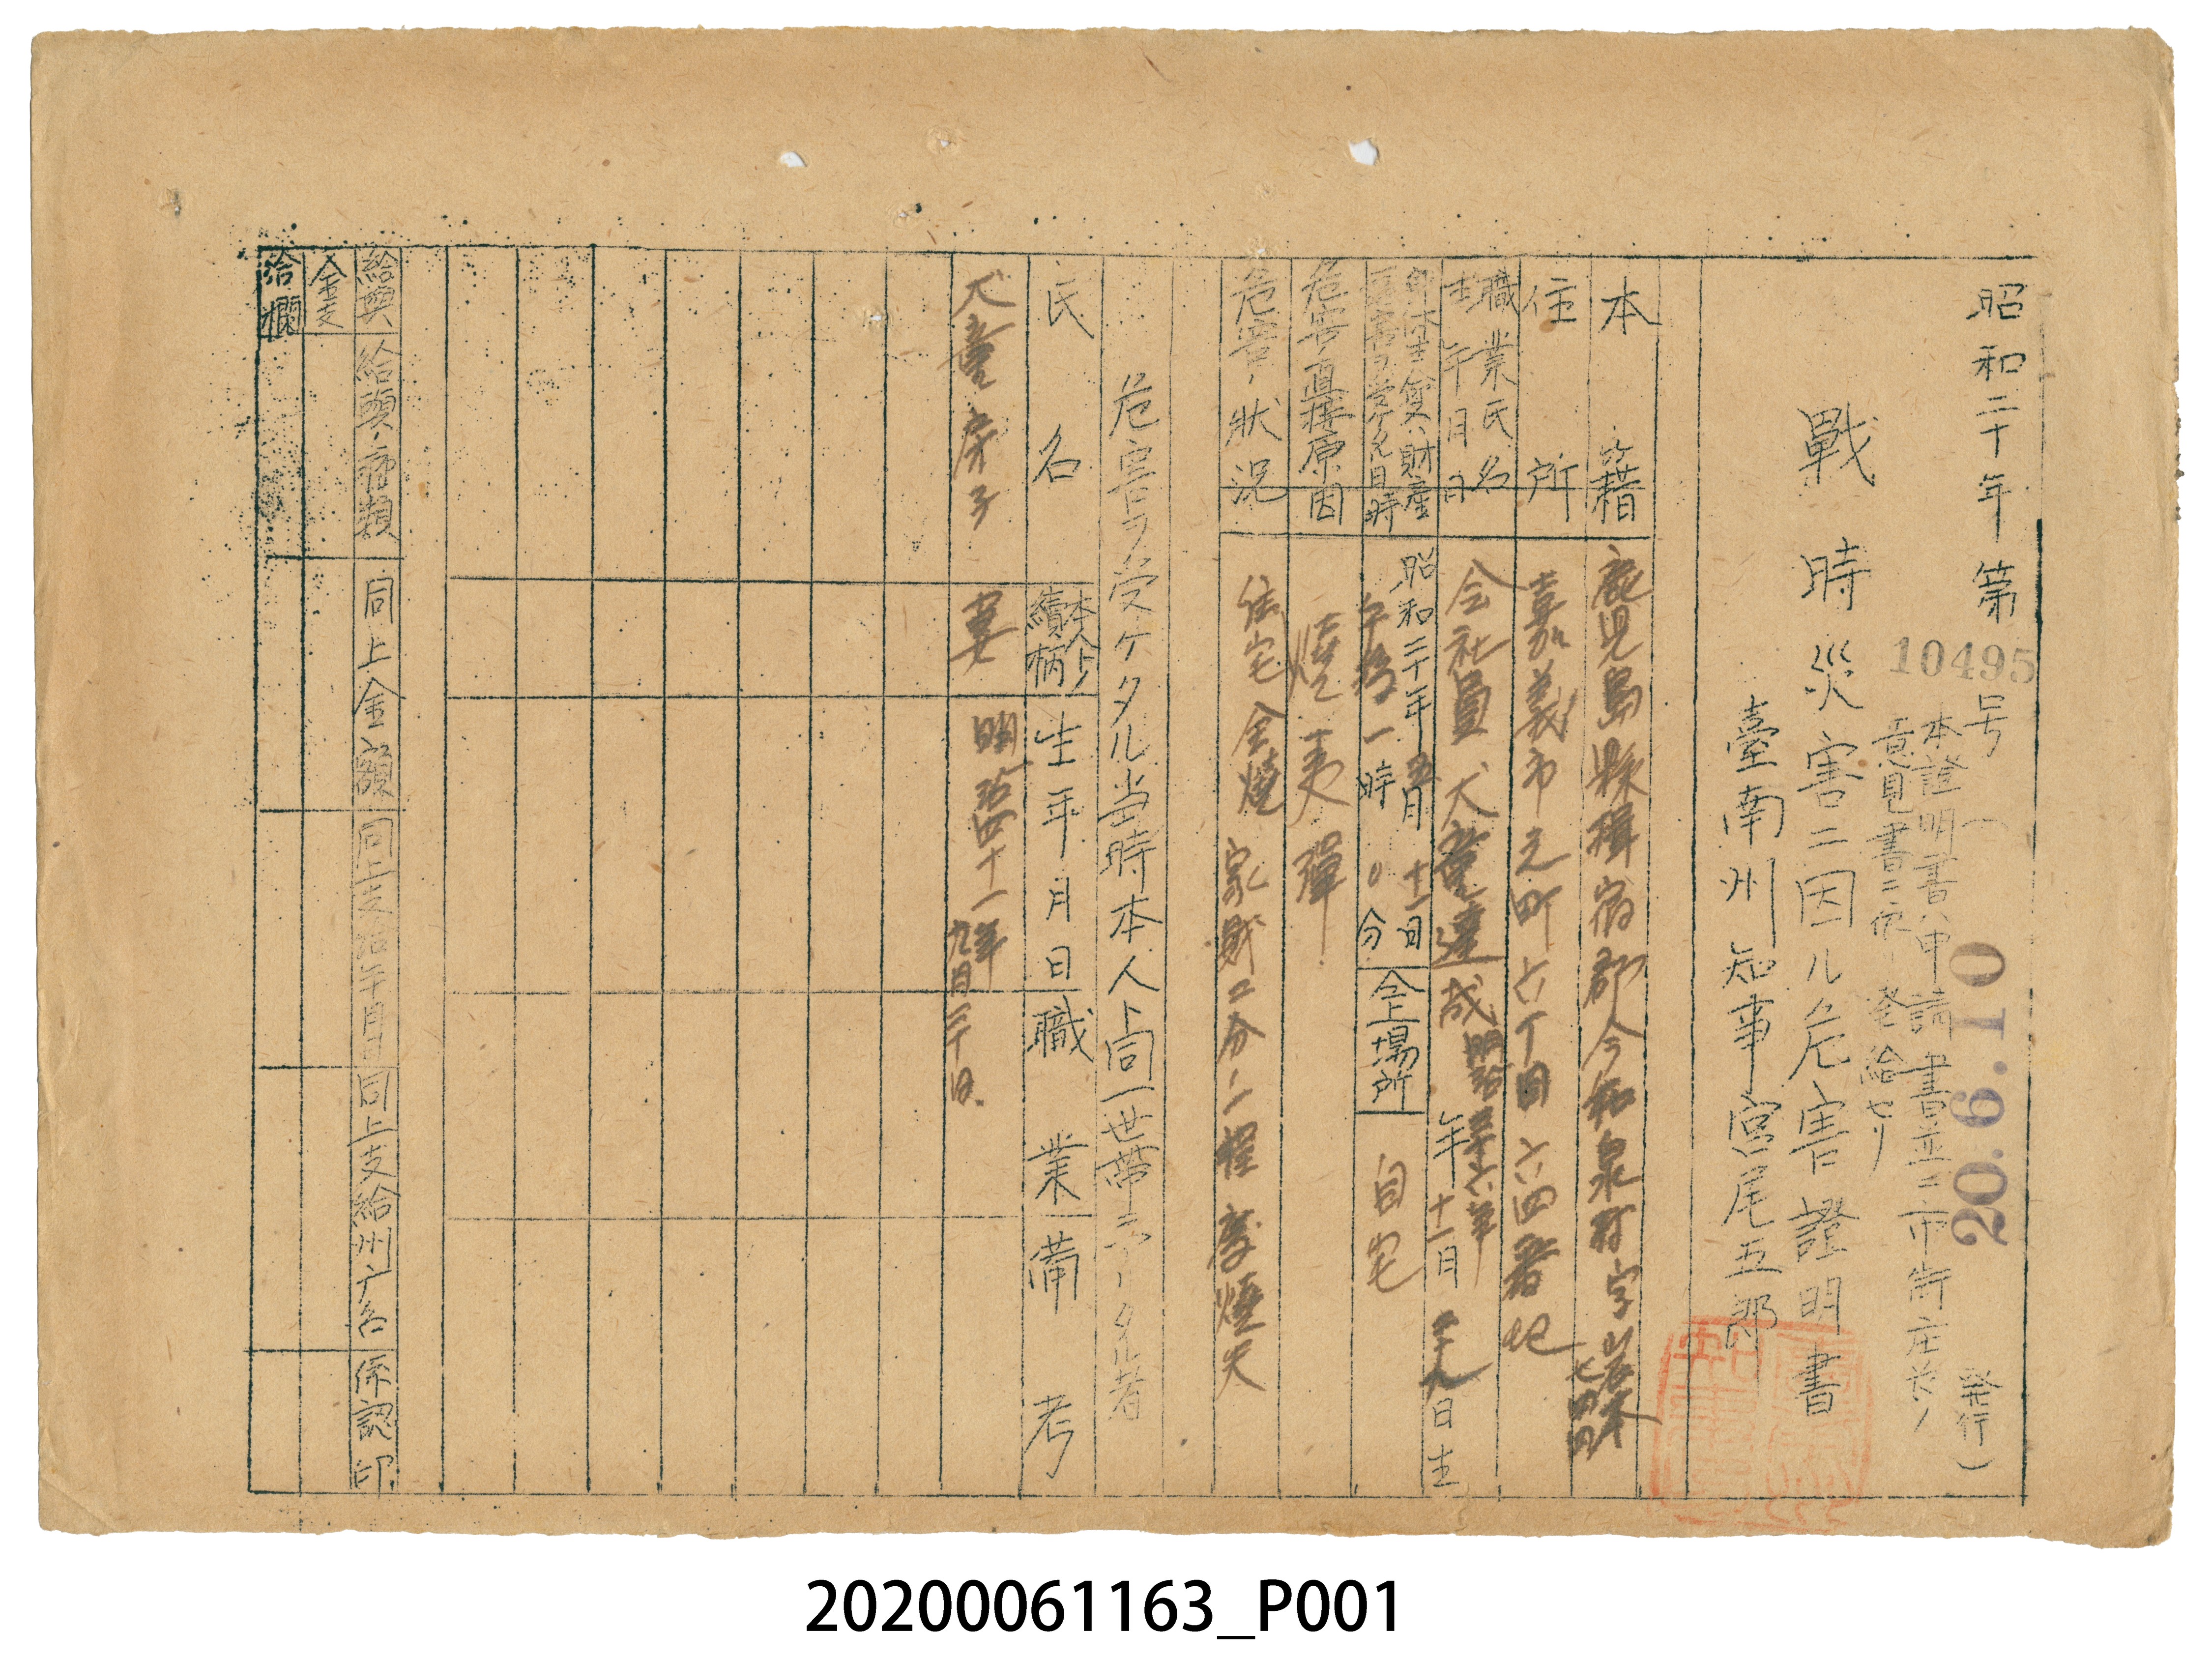 昭和二十年第10495号
20.6.10
(発行)
本證明書ハ申請書並ニ市街庄長ノ
意見書ニ依リ発給セリ
戰時災害ニ因ル危害證明書
臺南州知事宮尾五郎
本籍
鹿児島縣揖宿郡今和泉村字岩本
住所
嘉義市元町六丁目六四番地
職業氏名
生年月日
会社員 犬童達哉 明治三十六年十一月二十九日生
危害ヲ受ケタル日時
昭和二十年 五月 十二日
午後一時〇分
仝上場所
自宅
危害ノ直接原因
焼夷弾
危害ノ状況
住宅全焼 家財二分ノ一程度焼失
危害ヲ受ケタル当時本人ト同一世帯ニアリタル者
氏名
本人トノ
續柄
生年月日
職業
備考
犬童房子
妻
明治四十一年
九月三十日
給與
給與ノ種類
同上金額
同上支給年月日
同上支給州廳名
係認印
金支
給欄
20200061163_P001